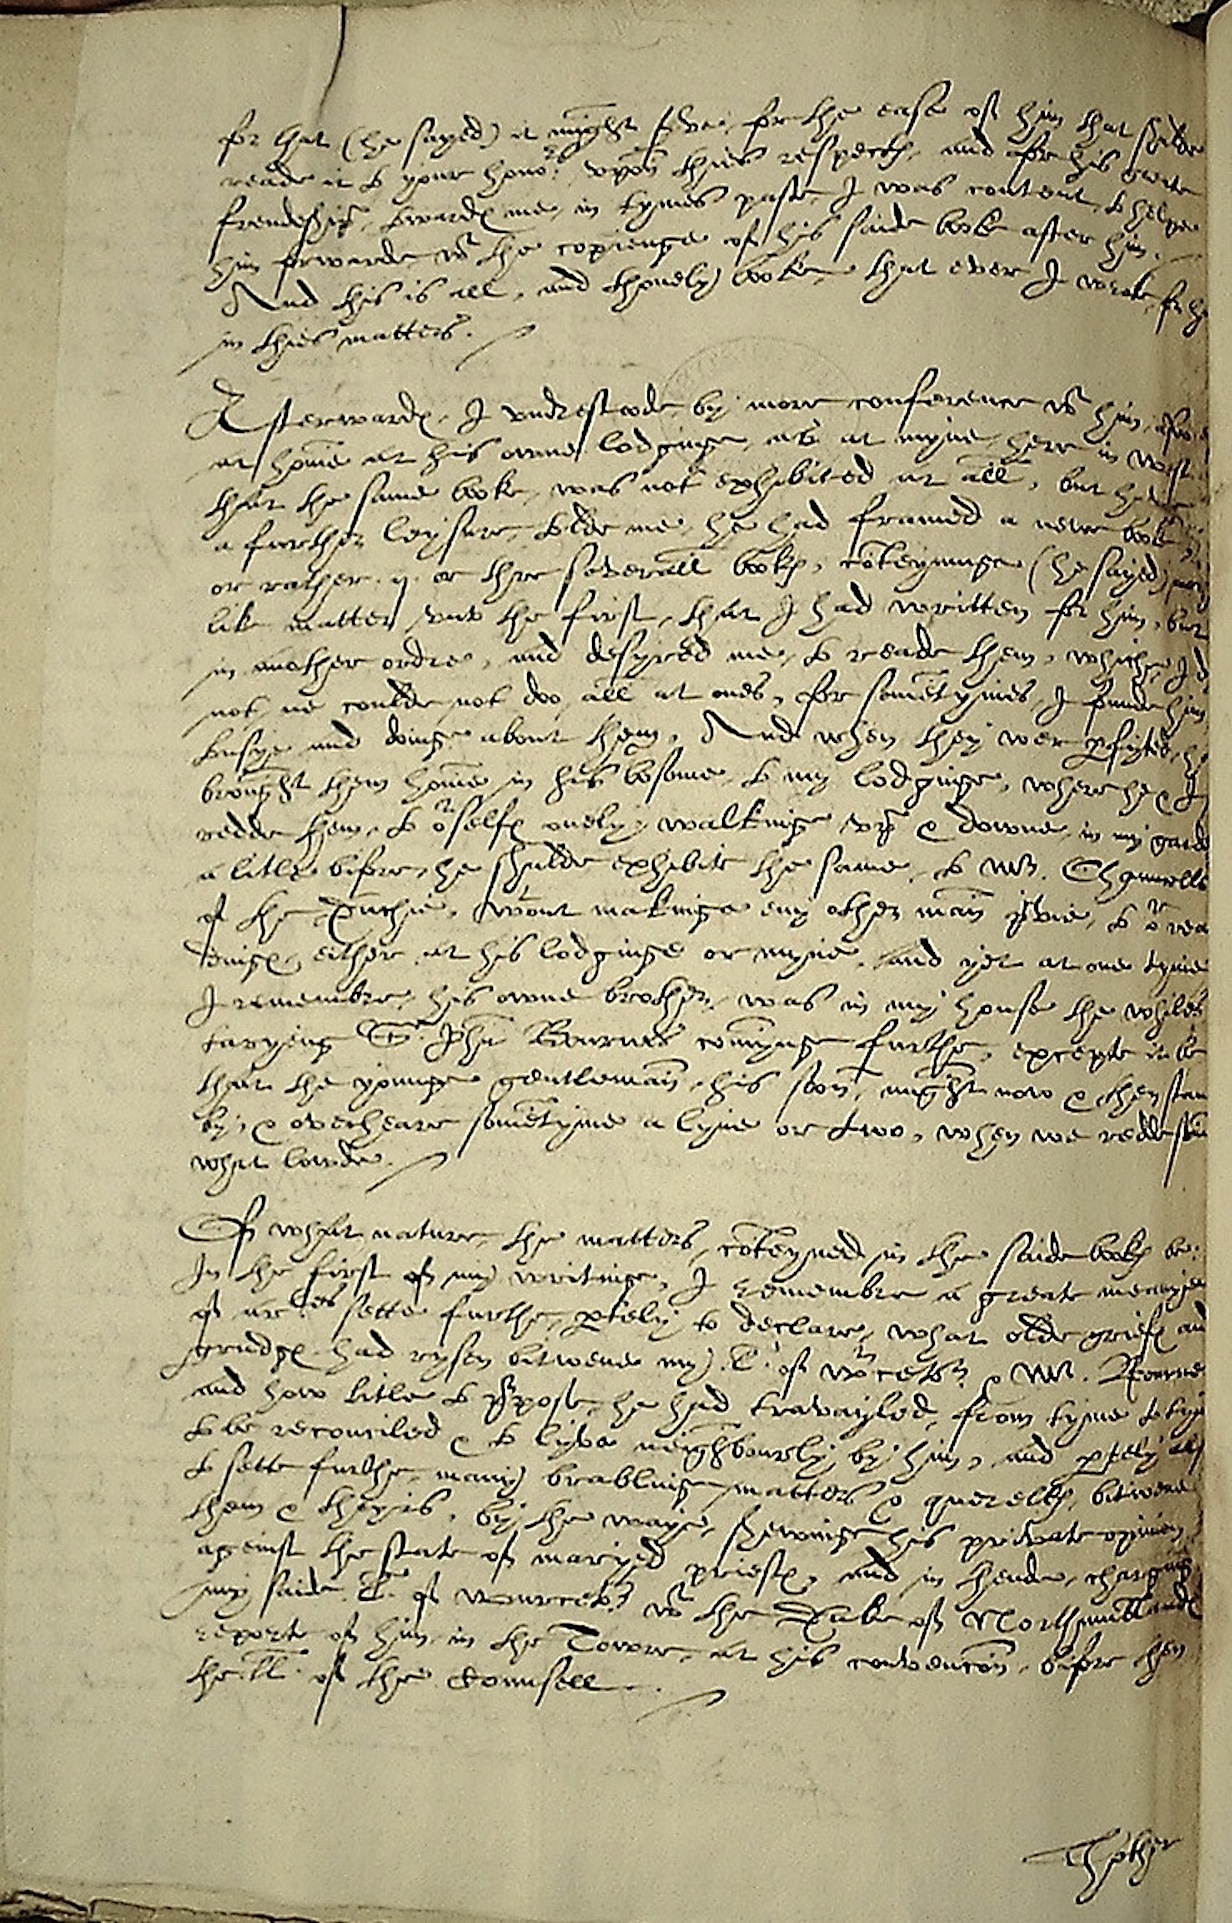 for that (he sayed) it might s9ve, for the ease of him that shulde
reade it to youre hono:rs upon thies respectes, and for his
frendeship towardes me, in tymes paste, I was content, to helpe
him forwarde, wt the copienge of his saide booke after him.
And this is all, and thonely booke, that ever I wrote for
in thies matters.
Afterwardes, I undrestoode, by more conference wt him,
at home at his owne lodginge, as at myne, here in
that the same booke, was not exhibited at all, but he
a further leysure, tolde me, he had framed a newe booke
or rather .ij. or thre severall bookes, coteyninge (he sayed)
like matter, unto the first, that I had written for him, but
in another ordre, and desyred me, to reade them, whiche, I
not, ne coulde not doo, all at ones, for sometymes, I founde him
busye and doinge about them. And when they wer pfyted, he
brought them home in his bosome, to my lodginge, where he & I
redde them, to or selfes onely, walkinge up & downe, in my
a litle bifore, he shulde exhibite the same, to Mr. Chauncello
of the Duchie, wtout makinge eny other man pvie, to or rea
dinges, either at his lodginge or myne. And yet at one tyme
I remembre, his owne brother, was in my house the whiles
taryeng Sr. John Bournes comyng furthe, excepte it be
that the yonge gentleman, his soon, might now & then stan
by, & overheare sometyme a lyne or two, when we redde
what lowde.
Of what nature, the matters, coteyned in the saide bookes be:
In the first of my writinge, I remembre a greate meanye
of articles sette furthe, ptely to declare, what olde griefes and
grudges had rysen bitwene my .L. of Worcetr & Mr. Bourne
and how litle to ppose, he had travayled, from tyme to tyme
to be reconciled & to lyve neighbourly by him, and ptely also
to sette furthe, many brablinge matters & querelles, bitwene
them & theyrs, by the waye, shewinge his private opinion
against the state of maryed priestes, and in thende, charging
my saide .L. of Wourcetr wt the Duke of Northumblandes
reporte of him in the Towre, at his convencon, bifore then
the .LL. of the Counsell.
Thother